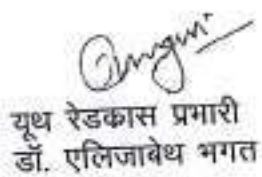 यूथ रेडकास प्रभारी
डॉ. एलिजाबेथ भगत